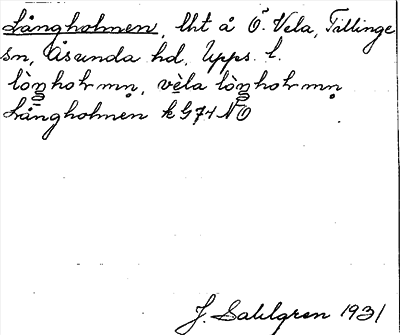 Långholmen, lht å Ö. Vela, Tillinge
sn, Åsunda hd, Upps. l.
lòŋholmn̥, vèla lòŋholmn̥
Långholmen k G74 NO
J. Sahlgren 1931